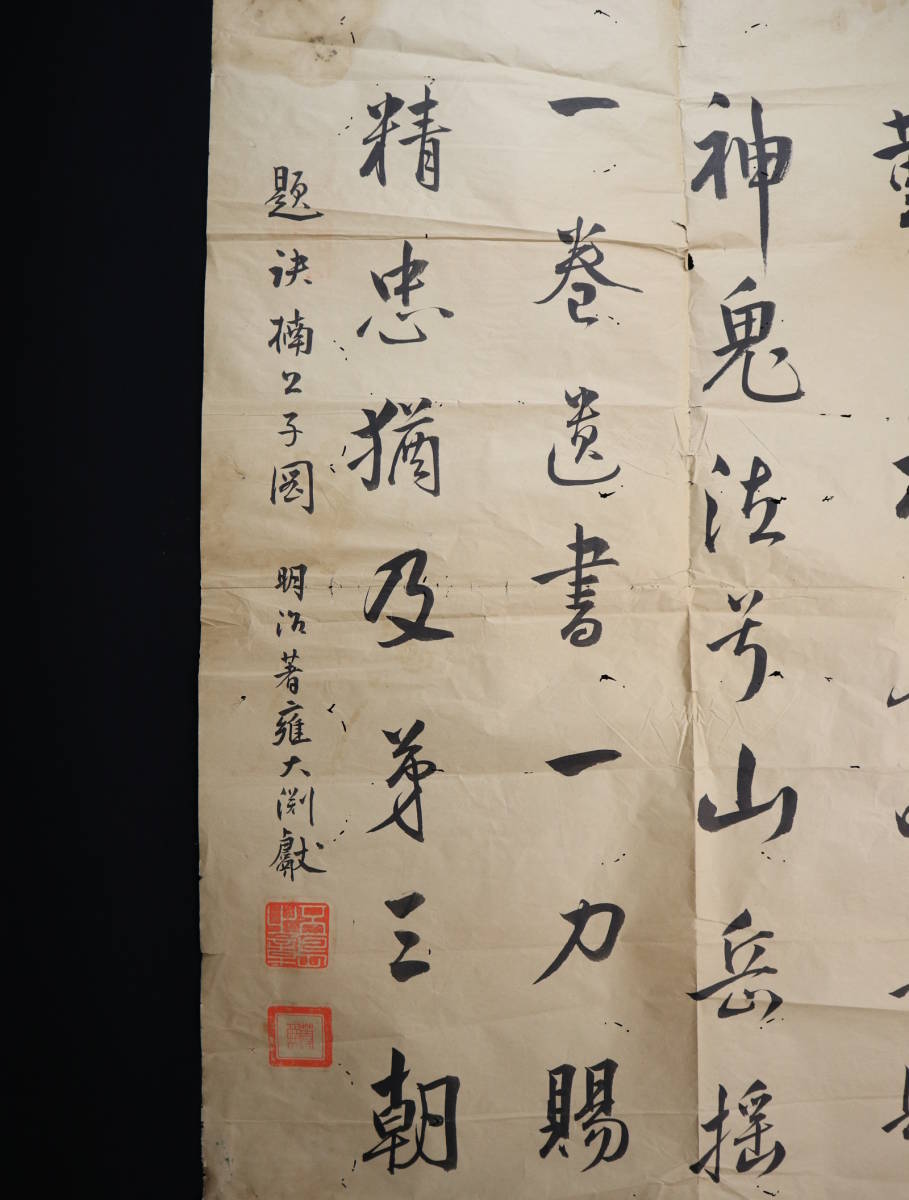 神鬼泣号山岳揺
一巻遺書一刀賜
精忠猶及第三朝
題訣楠公子図 明治著雍大渕献